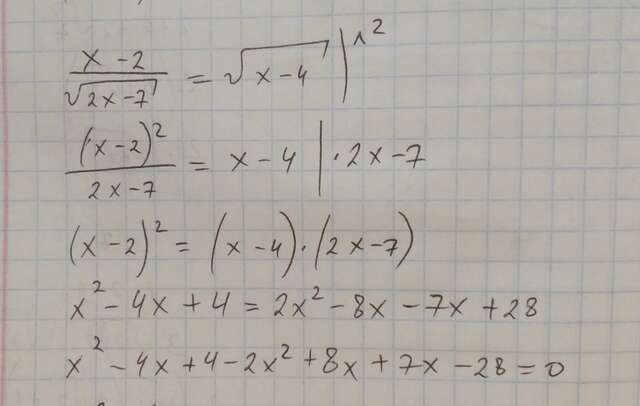 (x - 2)/√(2x - 7) = √(x - 4) | ^2
(x - 2)²/(2x - 7) = x - 4 | · 2x - 7
(x - 2)² = (x - 4) · (2x - 7)
x² - 4x + 4 = 2x² - 8x - 7x + 28
x² - 4x + 4 - 2x² + 8x + 7x - 28 = 0